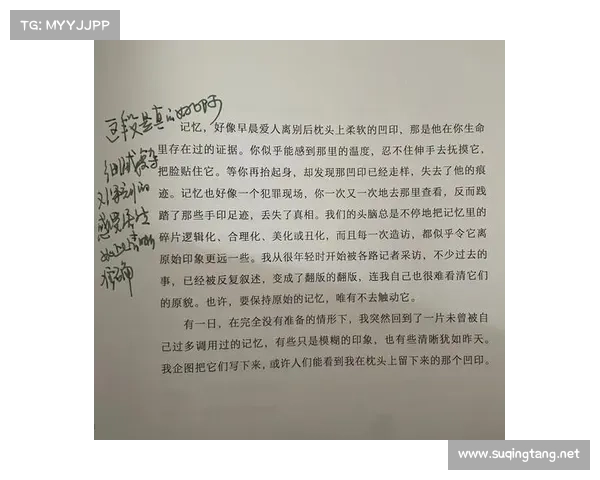 TG: MYYJJPP
这段是真的好
记忆，好像早晨爱人离别后枕头上柔软的凹印，那是他在你生命
里存在过的证据。你似乎能感到那里的温度，忍不住伸手去抚摸它，
把脸贴住它。等你再抬起身，却发现那凹印已经走样，失去了他的痕
迹。记忆也好像一个犯罪现场，你一次又一次地去那里查看，反而践
踏了那些手印足迹，丢失了真相。我们的头脑总是不停地把记忆里的
碎片逻辑化、合理化、美化或丑化，而且每一次造访，都似乎令它离
原始印象更远一些。我从很年轻时开始被各路记者采访，不少过去的
事，已经被反复叙述，变成了翻版的翻版，连我自己也很难看清它们
的原貌。也许，要保持原始的记忆，唯有不去触动它。
有一日，在完全没有准备的情形下，我突然回到了一片未曾被自
己过多调用过的记忆，有些只是模糊的印象，也有些清晰犹如昨天。
我企图把它们写下来，或许人们能看到我在枕头上留下来的那个凹印。
www.suqingtang.net